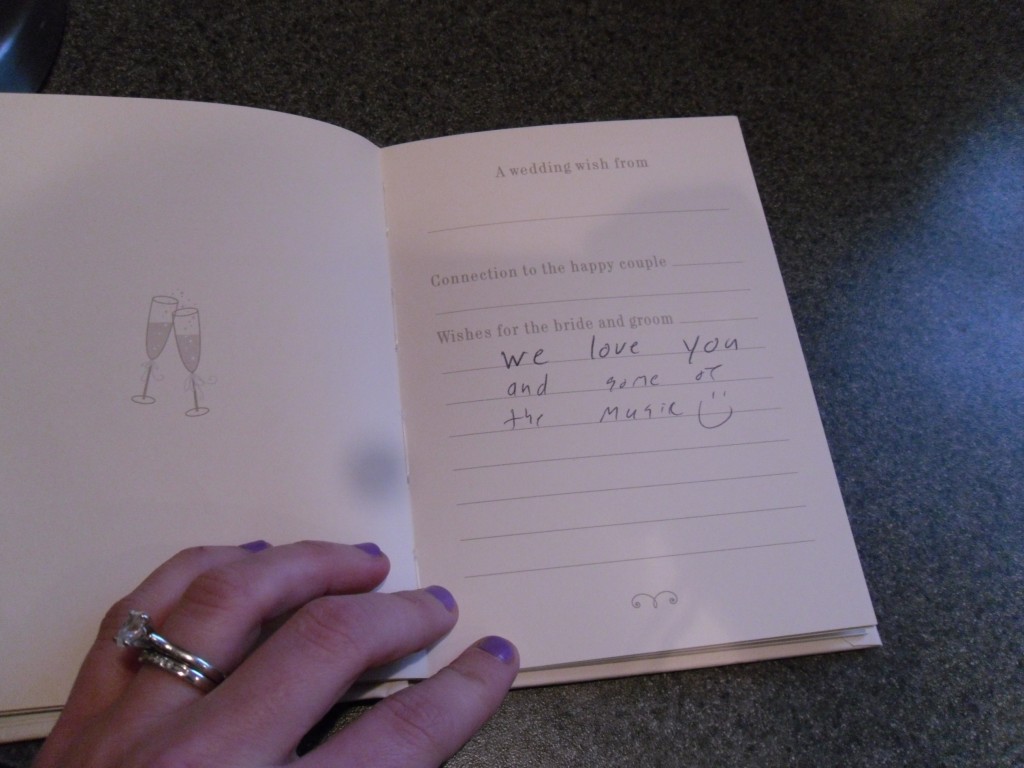 A wedding wish from
Connection to the happy couple
Wishes for the bride and groom
we love you
and some of
the music